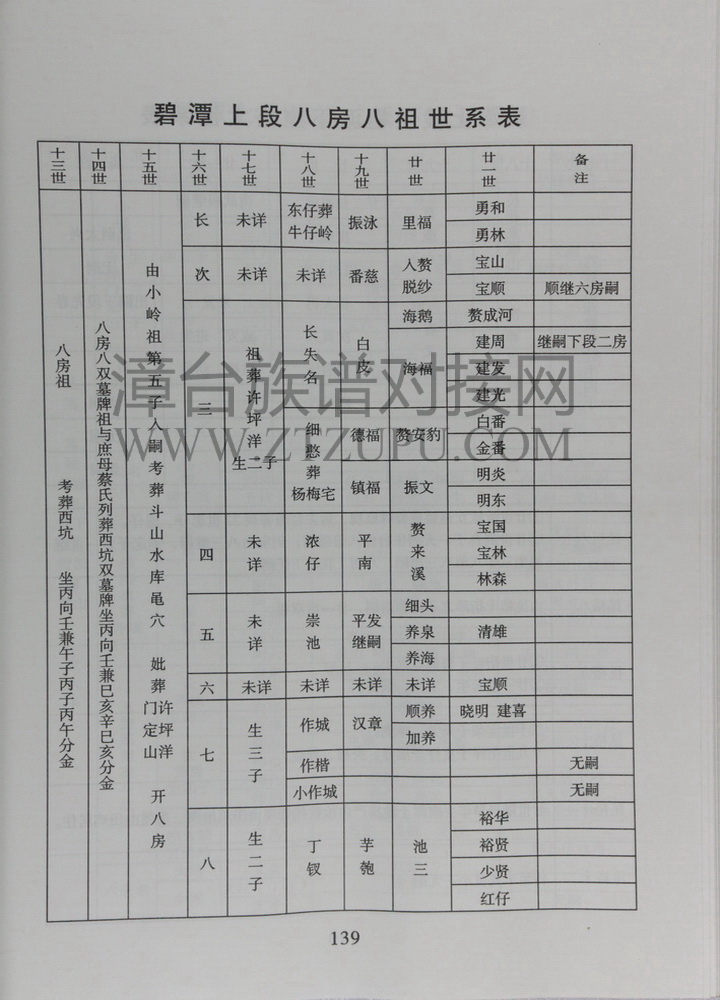 碧潭上段八房八祖世系表
十三世 十四世 十五世 十六世 十七世 十八世 十九世 廿世 廿一世 备注
八房祖 考葬西坑 坐丙向壬兼午子丙子丙午分金
八房八双墓牌祖与庶母蔡氏列葬西坑双墓牌坐丙向壬兼巳亥辛巳亥分金
由小岭祖第五子入嗣考葬斗山水库黾穴 妣葬许坪洋门定山 开八房
长 未详 东仔葬牛仔岭 振泳 里福 勇和
勇林
次 未详 未详 番慈 入赘脱纱 宝山
宝顺 顺继六房嗣
三 祖葬许坪洋生二子 长失名 白皮 海鹅 赘成河
海福 建周 继嗣下段二房
建发
建光
细憨葬杨梅宅 德福 赘安豹 白番
金番
镇福 振文 明炎
明东
四 未详 浓仔 平南 赘来溪 宝国
宝林
林森
五 未详 崇池 平发继嗣 细头
养泉 清雄
养海
六 未详 未详 未详 未详 宝顺
七 生三子 作城 汉章 顺养 晓明 建喜
加养
作楷 无嗣
小作城 无嗣
八 生二子 丁钗 芋匏 池三 裕华
裕贤
少贤
红仔
139
漳台族谱对接网
WWW.ZTZUPU.COM